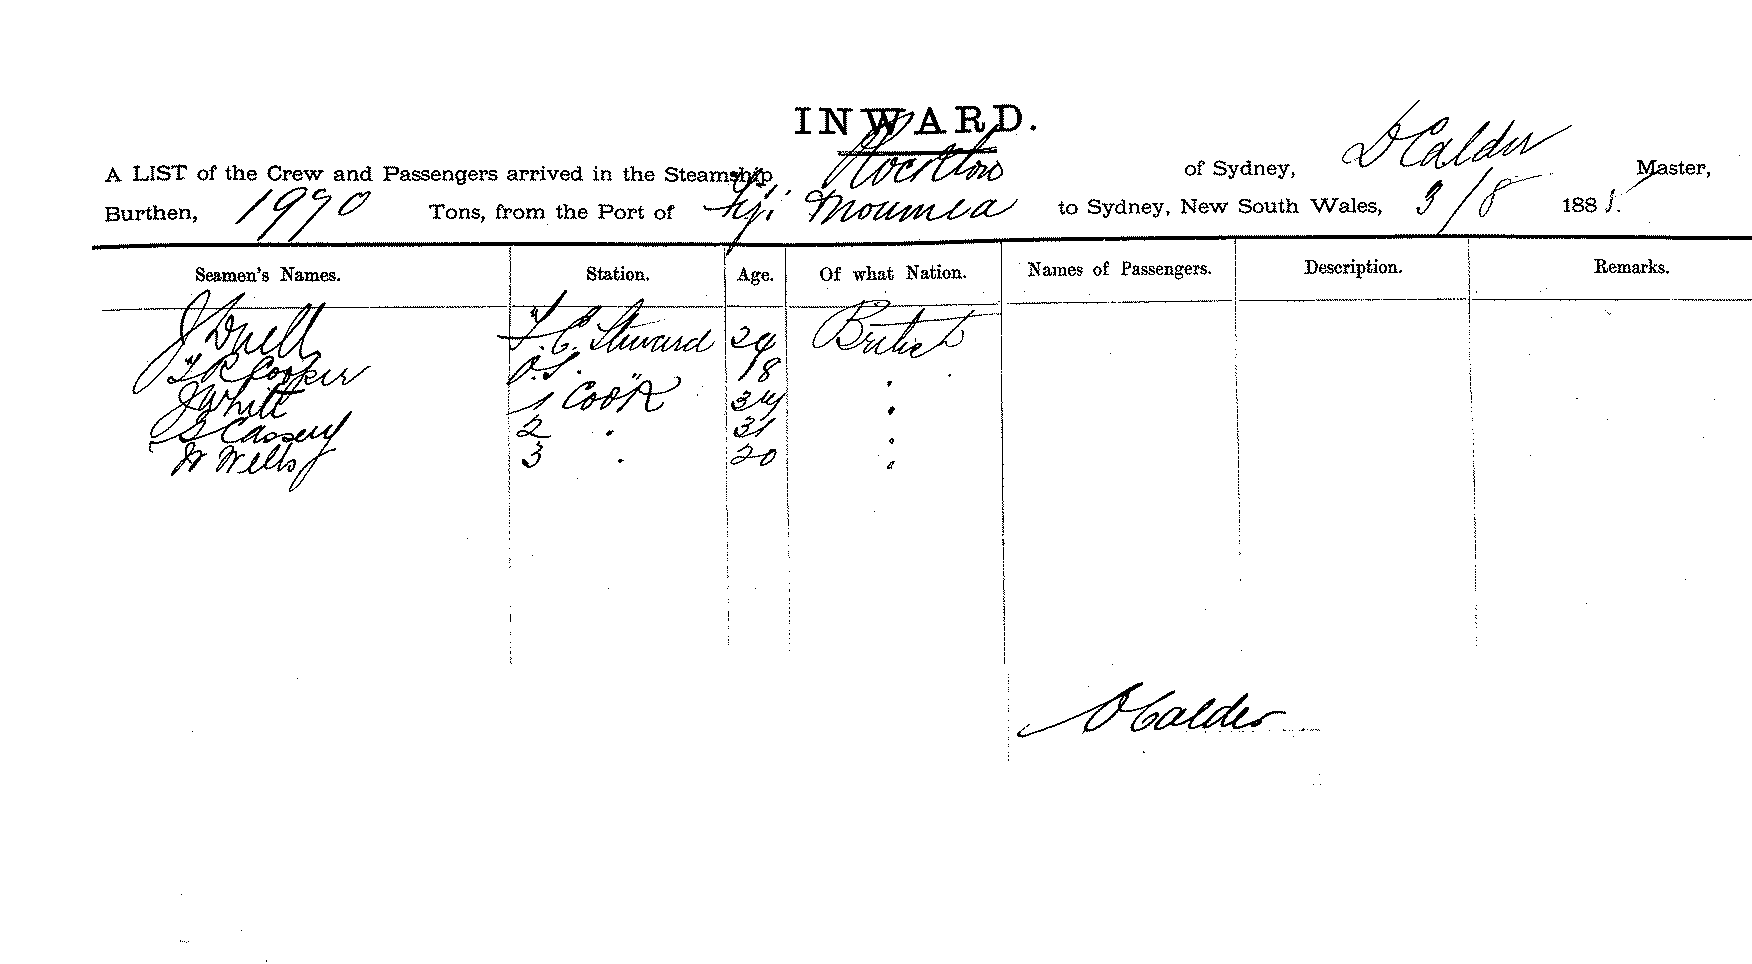 INWARD.
A LIST of the Crew and Passengers arrived in the Steamship Rockton of Sydney, D Calder Master,
Burthen, 1990 Tons, from the Port of Fiji Noumea to Sydney, New South Wales, 3/8 188
Seamen's Names. Station. Age. Of what Nation. Names of Passengers. Description. Remarks.
J Duell F.C. Steward 29 British
T R Cooper O.S. 18 "
J White 1 Cook 34 "
Cassery 2 " 31 "
W Wells 3 " 20 "
D Calder